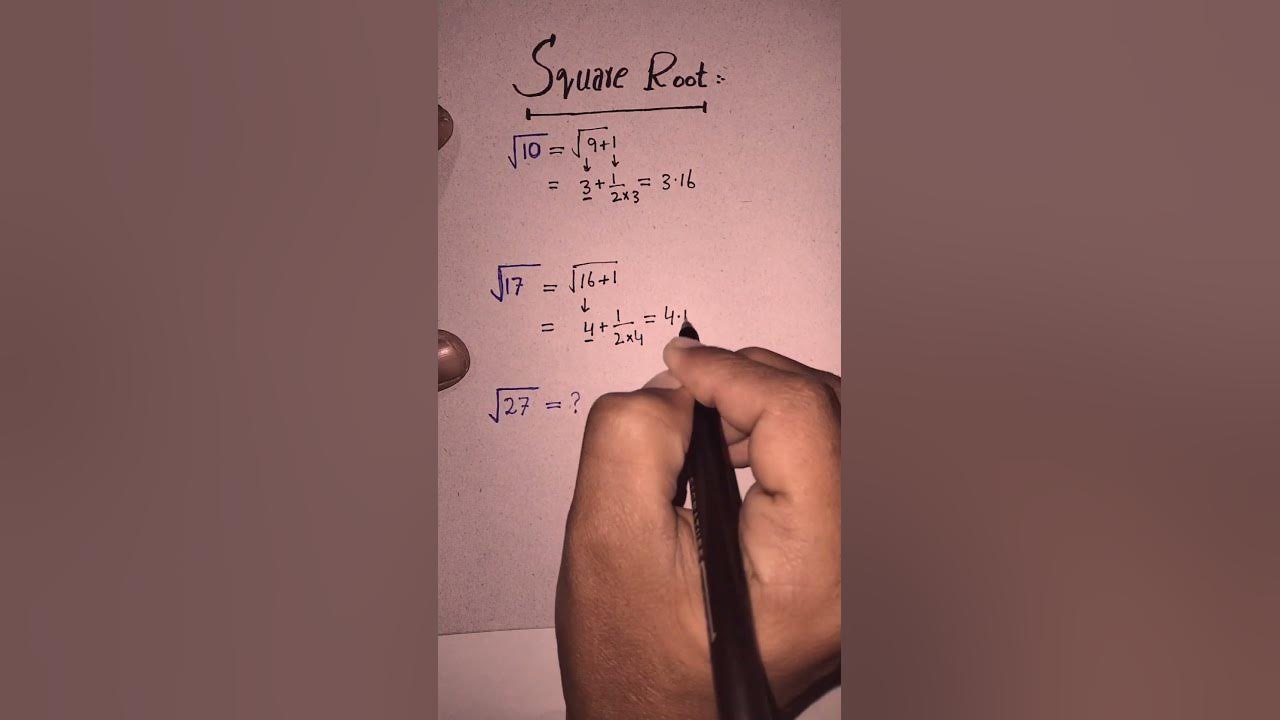 Square Root :-
√10 = √9+1
= 3 + 1/2×3 = 3·16
√17 = √16+1
= 4 + 1/2×4 = 4·1
√27 = ?